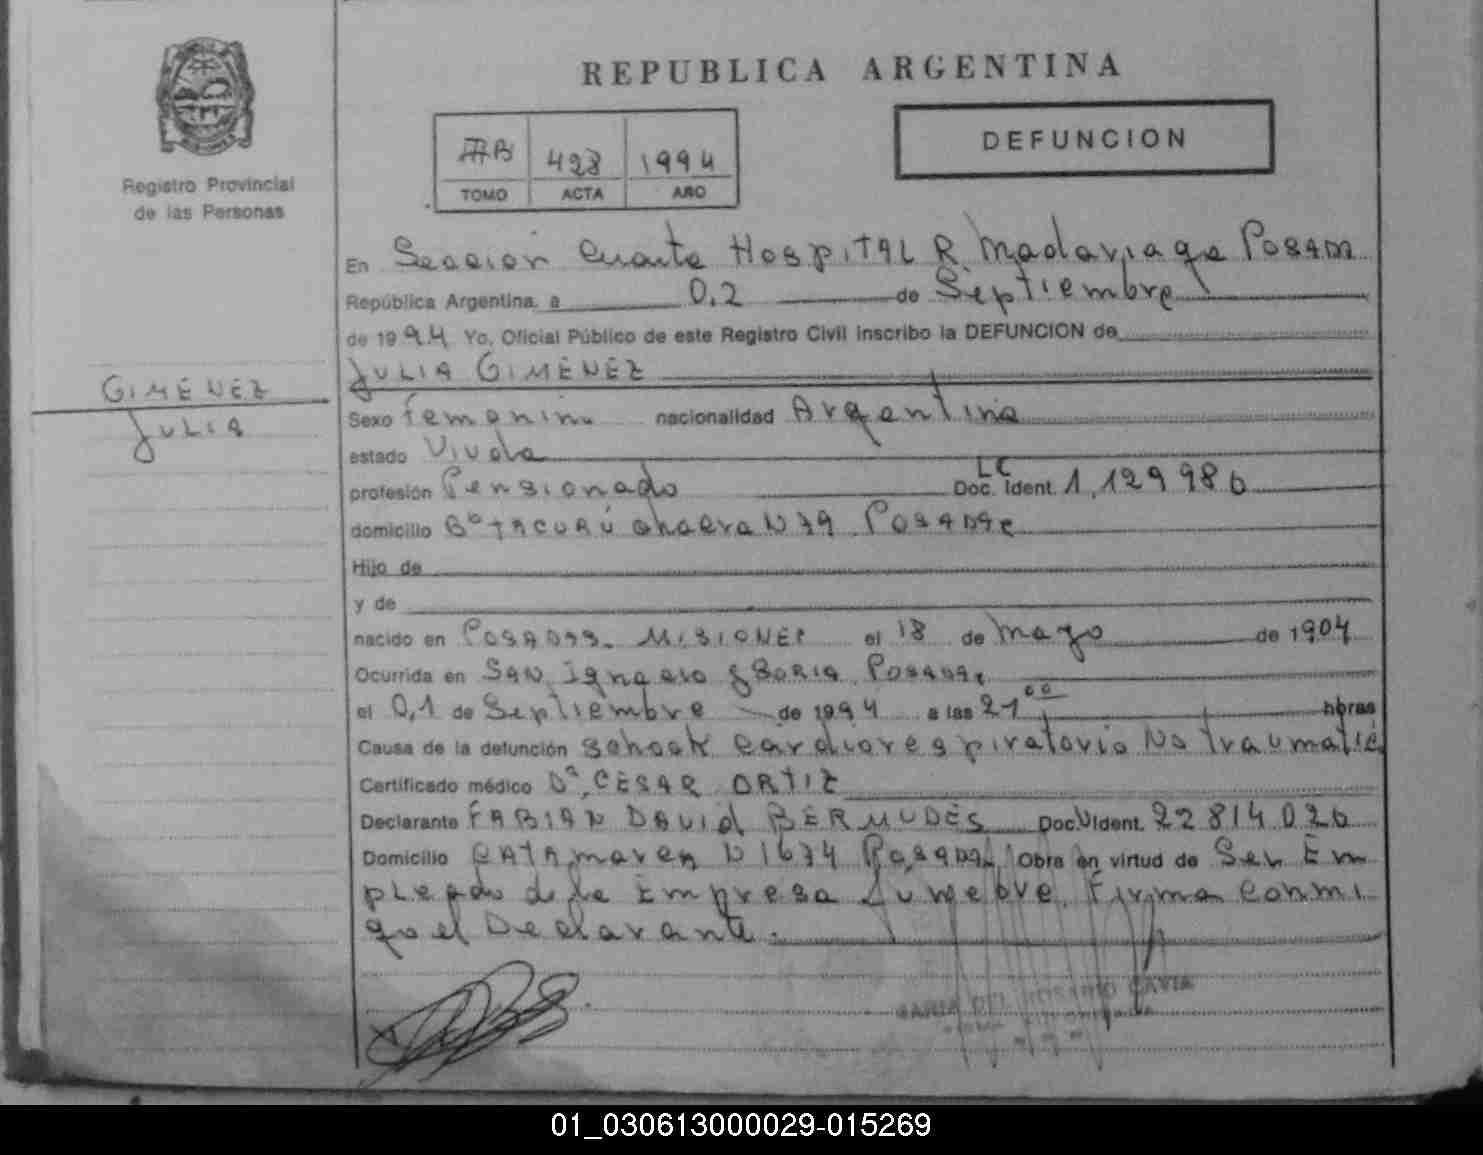 REPUBLICA ARGENTINA
DEFUNCION
428 1994
TOMO ACTA AÑO
Registro Provincial
de las Personas
En Seccion Cuarta HOSPITAL R Madariaga POSADA
República Argentina, a 0,2 de Septiembre
de 1994 Yo, Oficial Público de este Registro Civil inscribo la DEFUNCION de
JULIA GIMÉNEZ
GIMÉNEZ
JULIA
Sexo Femenino nacionalidad Argentina
estado Viuda
LC
profesión Pensionado Doc. Ident. 1,129986
domicilio Bº TACURÚ chacra N 79 POSADAS
Hijo de
y de
nacido en POSADAS. MISIONES el 18 de Mayo de 1904
Ocurrida en SAN Ignacio y SORIA POSADAS
el 0,1 de Septiembre de 1994 a las 21⁰⁰ horas
Causa de la defunción Schock Cardiorespiratorio No traumatic
Certificado médico Dº, CÉSAR ORTIZ
Declarante FABIAN DAVID BÉRMUDÉS Doc. Ident. 22814026
Domicilio CATAmarca N 1674 POSADAS Obra en virtud de Ser Em
pleado de la Empresa fúnebre. Firma Conmi
go el Declarante.
MARIA DEL ROSARIO GAVIA
01_030613000029-015269